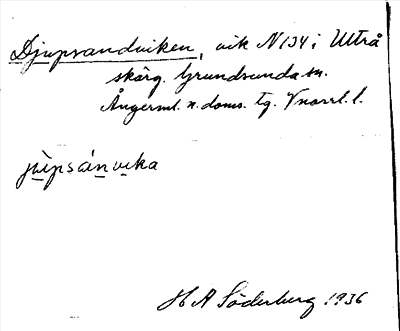 Djupsandviken, vik N 134 i Ultrå
skärg. Grundsunda sn.
Ångerml. n. doms. tg. Vnorrl. l.
jùpsánvika
H A Söderberg 1936